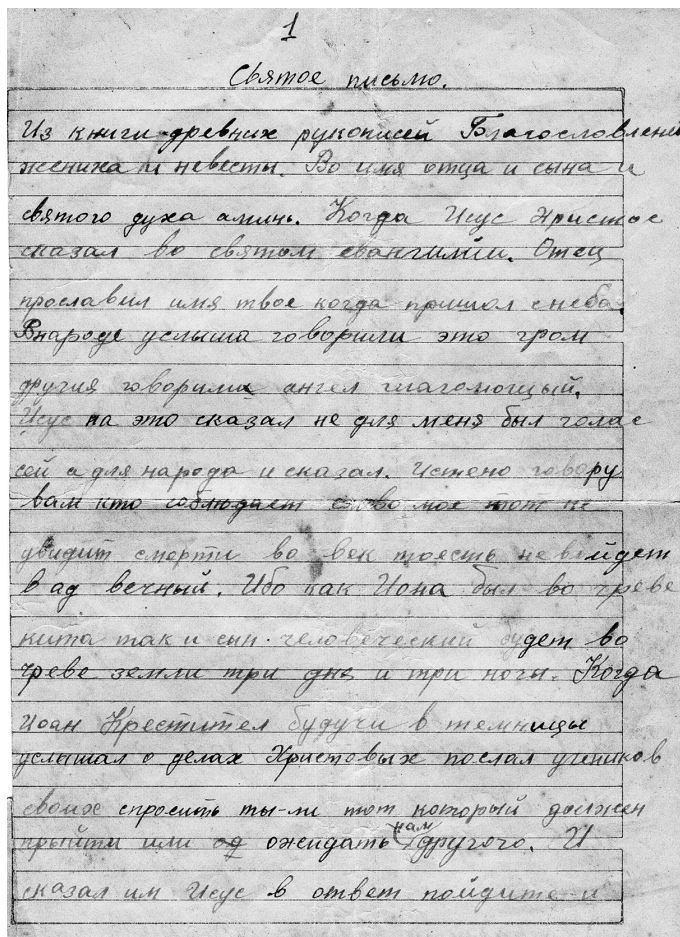 1
Святое письмо.
Из книги древних рукописей Благославлений
жениха и невесты. Во имя отца и сына и
святого духа аминь. Когда Исус Христос
сказал во святом евангилии. Отец
прославил имя твое когда пришол с неба.
Внароде услыша говорили это гром
другия говорили ангел глагонощий.
Исус на это сказал не для меня был голас
сей а для народа и сказал. Истено говору
вам кто соблюдает слово мое тот не
увидит смерти во век тоесть не выйдет
в ад вечный. Ибо как Иона был во чреве
кита так и сын человеческий будет во
чреве земли три дня и три ночы. Когда
Иоан Крестител будучи в темницы
услышал о делах Христовых послал учеников
своих спросить ты-ли тот который должен
прыйти или ожидать нам другого. И
сказал им Исус в ответ пойдите и